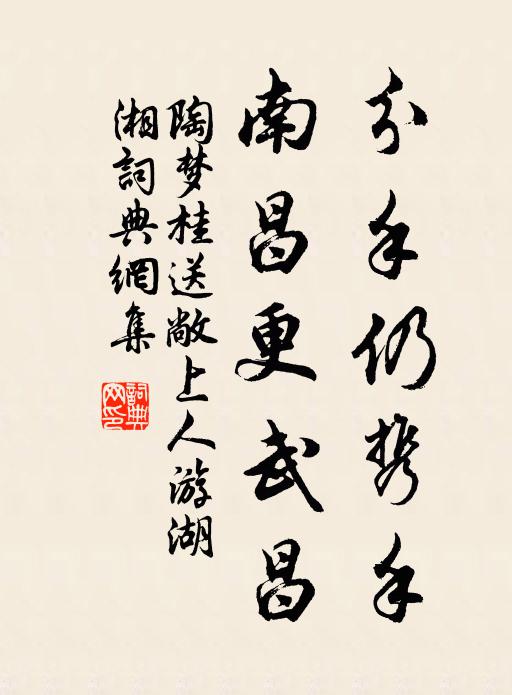 分手仍携手
南昌更武昌
陶梦桂送敞上人游湖
湘詞典網集
詞典
网印